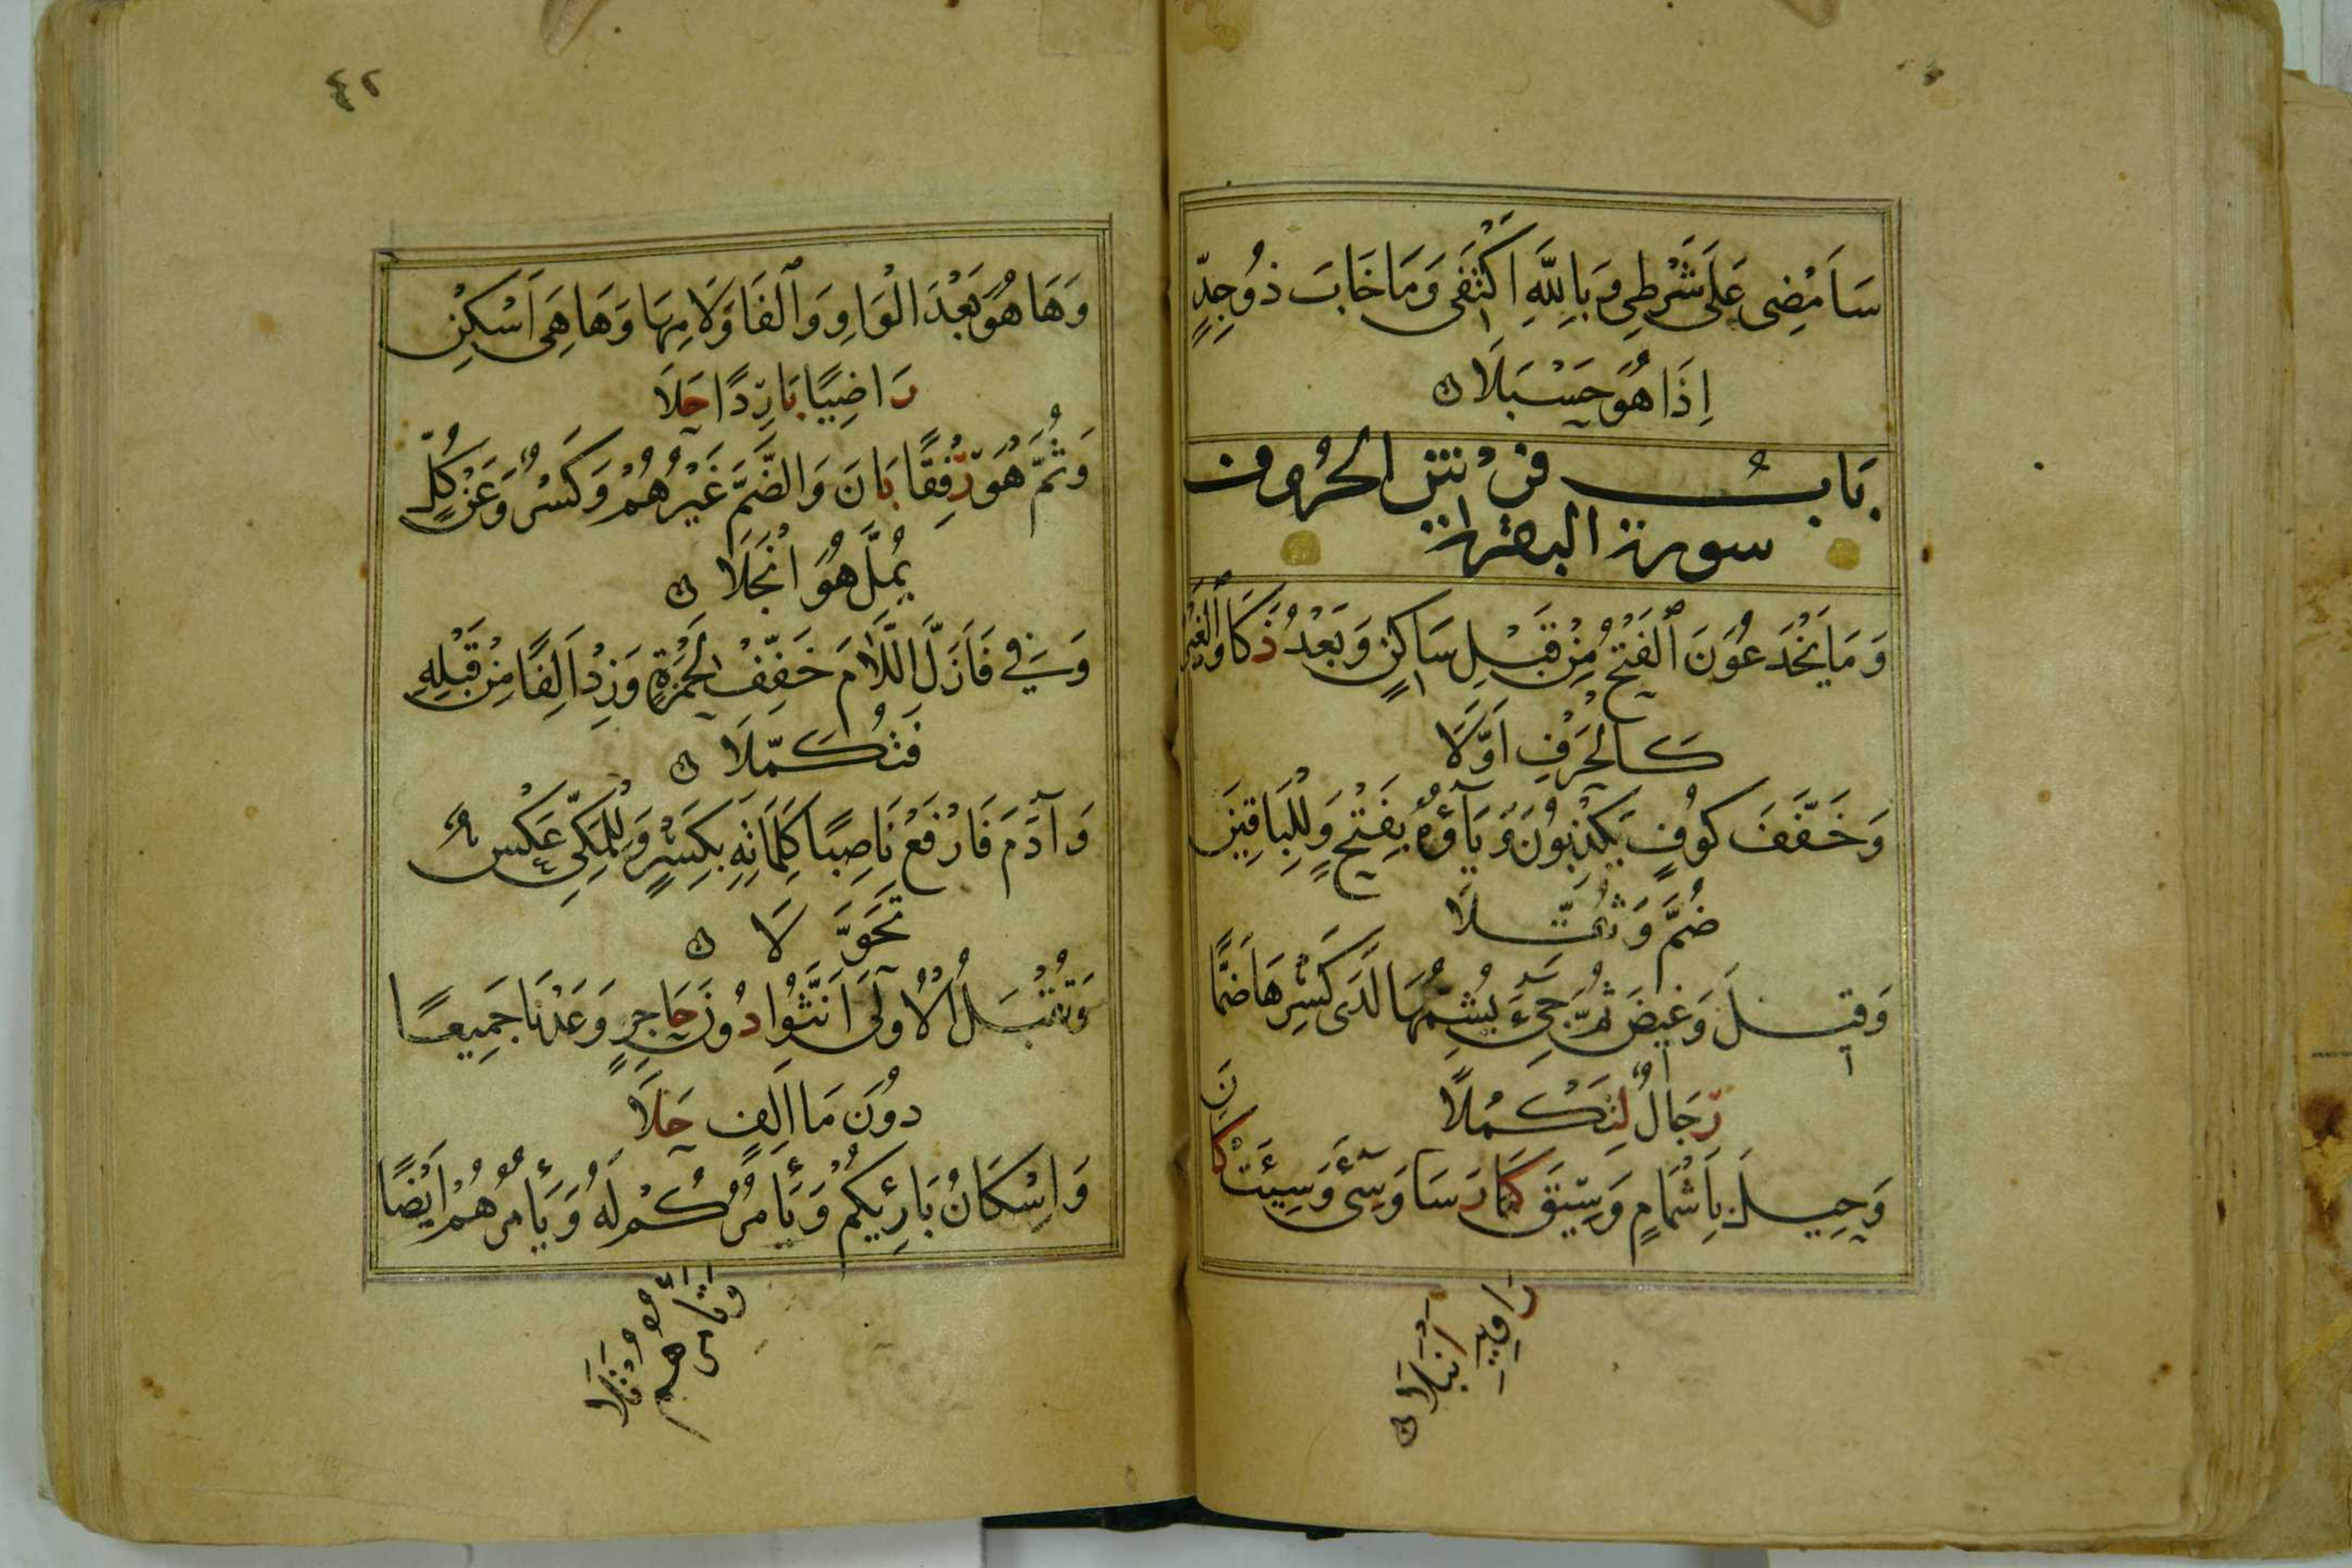 سَاَمْضِى عَلَى شَرْطِى وَبِاللهِ اَكْتَفِى وَمَا خَابَ ذُوجِدٍّ
اِذَا هُوَ حَسْبَلَا
بَابُ فرش الحُرُوف
سورة البقرة
وَمَا يَخْدَعُونَ الْفَتْحُ مِنْ قَبْلِ سَاكِنٍ وَبَعْدُ ذَكَا وَالْغَيْرُ
كَالْحَرْفِ اَوَّلَا
وَخَفَّفَ كُوفٍ يَكْذِبُونَ وَيَاؤُهُ بِفَتْحٍ وَلِلْبَاقِينَ
ضُمَّ وَثُقِّلَا
وَقِيلَ وَغِيضَ ثُمَّ جِىءَ يُشِمُّهَا لَدَى كَسْرِهَا ضَمًّا
رِجَالٌ لِتَكْمُلَا
وَحِيلَ بِاِشْمَامٍ وَسِيقَ كَمَا رَسَا وَسِىءَ وَسِيئَتْ كَانَ
رَاوِيهِ اَنْبَلَا
٤٢
وَهَا هُوَ بَعْدَ الْوَاوِ وَالْفَا وَلَامِهَا وَهَا هِىَ اَسْكِنْ
رَاضِيًا بَارِدًا حَلَا
وَثُمَّ هُوَ رِفْقًا بَانَ وَالضَّمَّ غَيْرُهُمْ وَكَسْرٌ وَعَنْ كُلٍّ
يُمِلَّ هُوَ انْجَلَا
وَفِي فَاَزَلَّ اللَّامَ خَفِّفْ لِحَمْزَةٍ وَزِدْ اَلِفًا مِنْ قَبْلِهِ
فَتُكَمِّلَا
وَآدَمَ فَارْفَعْ نَاصِبًا كَلِمَاتِهِ بِكَسْرٍ وَلِلْمَكِّىِّ عَكْسٌ
تَحَوَّلَا
وَتُقْبَلُ الْاُولَى اَنَّثُوا دُونَ حَاجِزٍ وَعَدْنَا جَمِيعًا
دُونَ مَا اَلِفٍ حَلَا
وَاِسْكَانُ بَارِئِكُمْ وَيَأْمُرُكُمْ لَهُ وَيَأْمُرُهُمْ اَيْضًا
وَتَأْمُرُهُمْ تَلَا